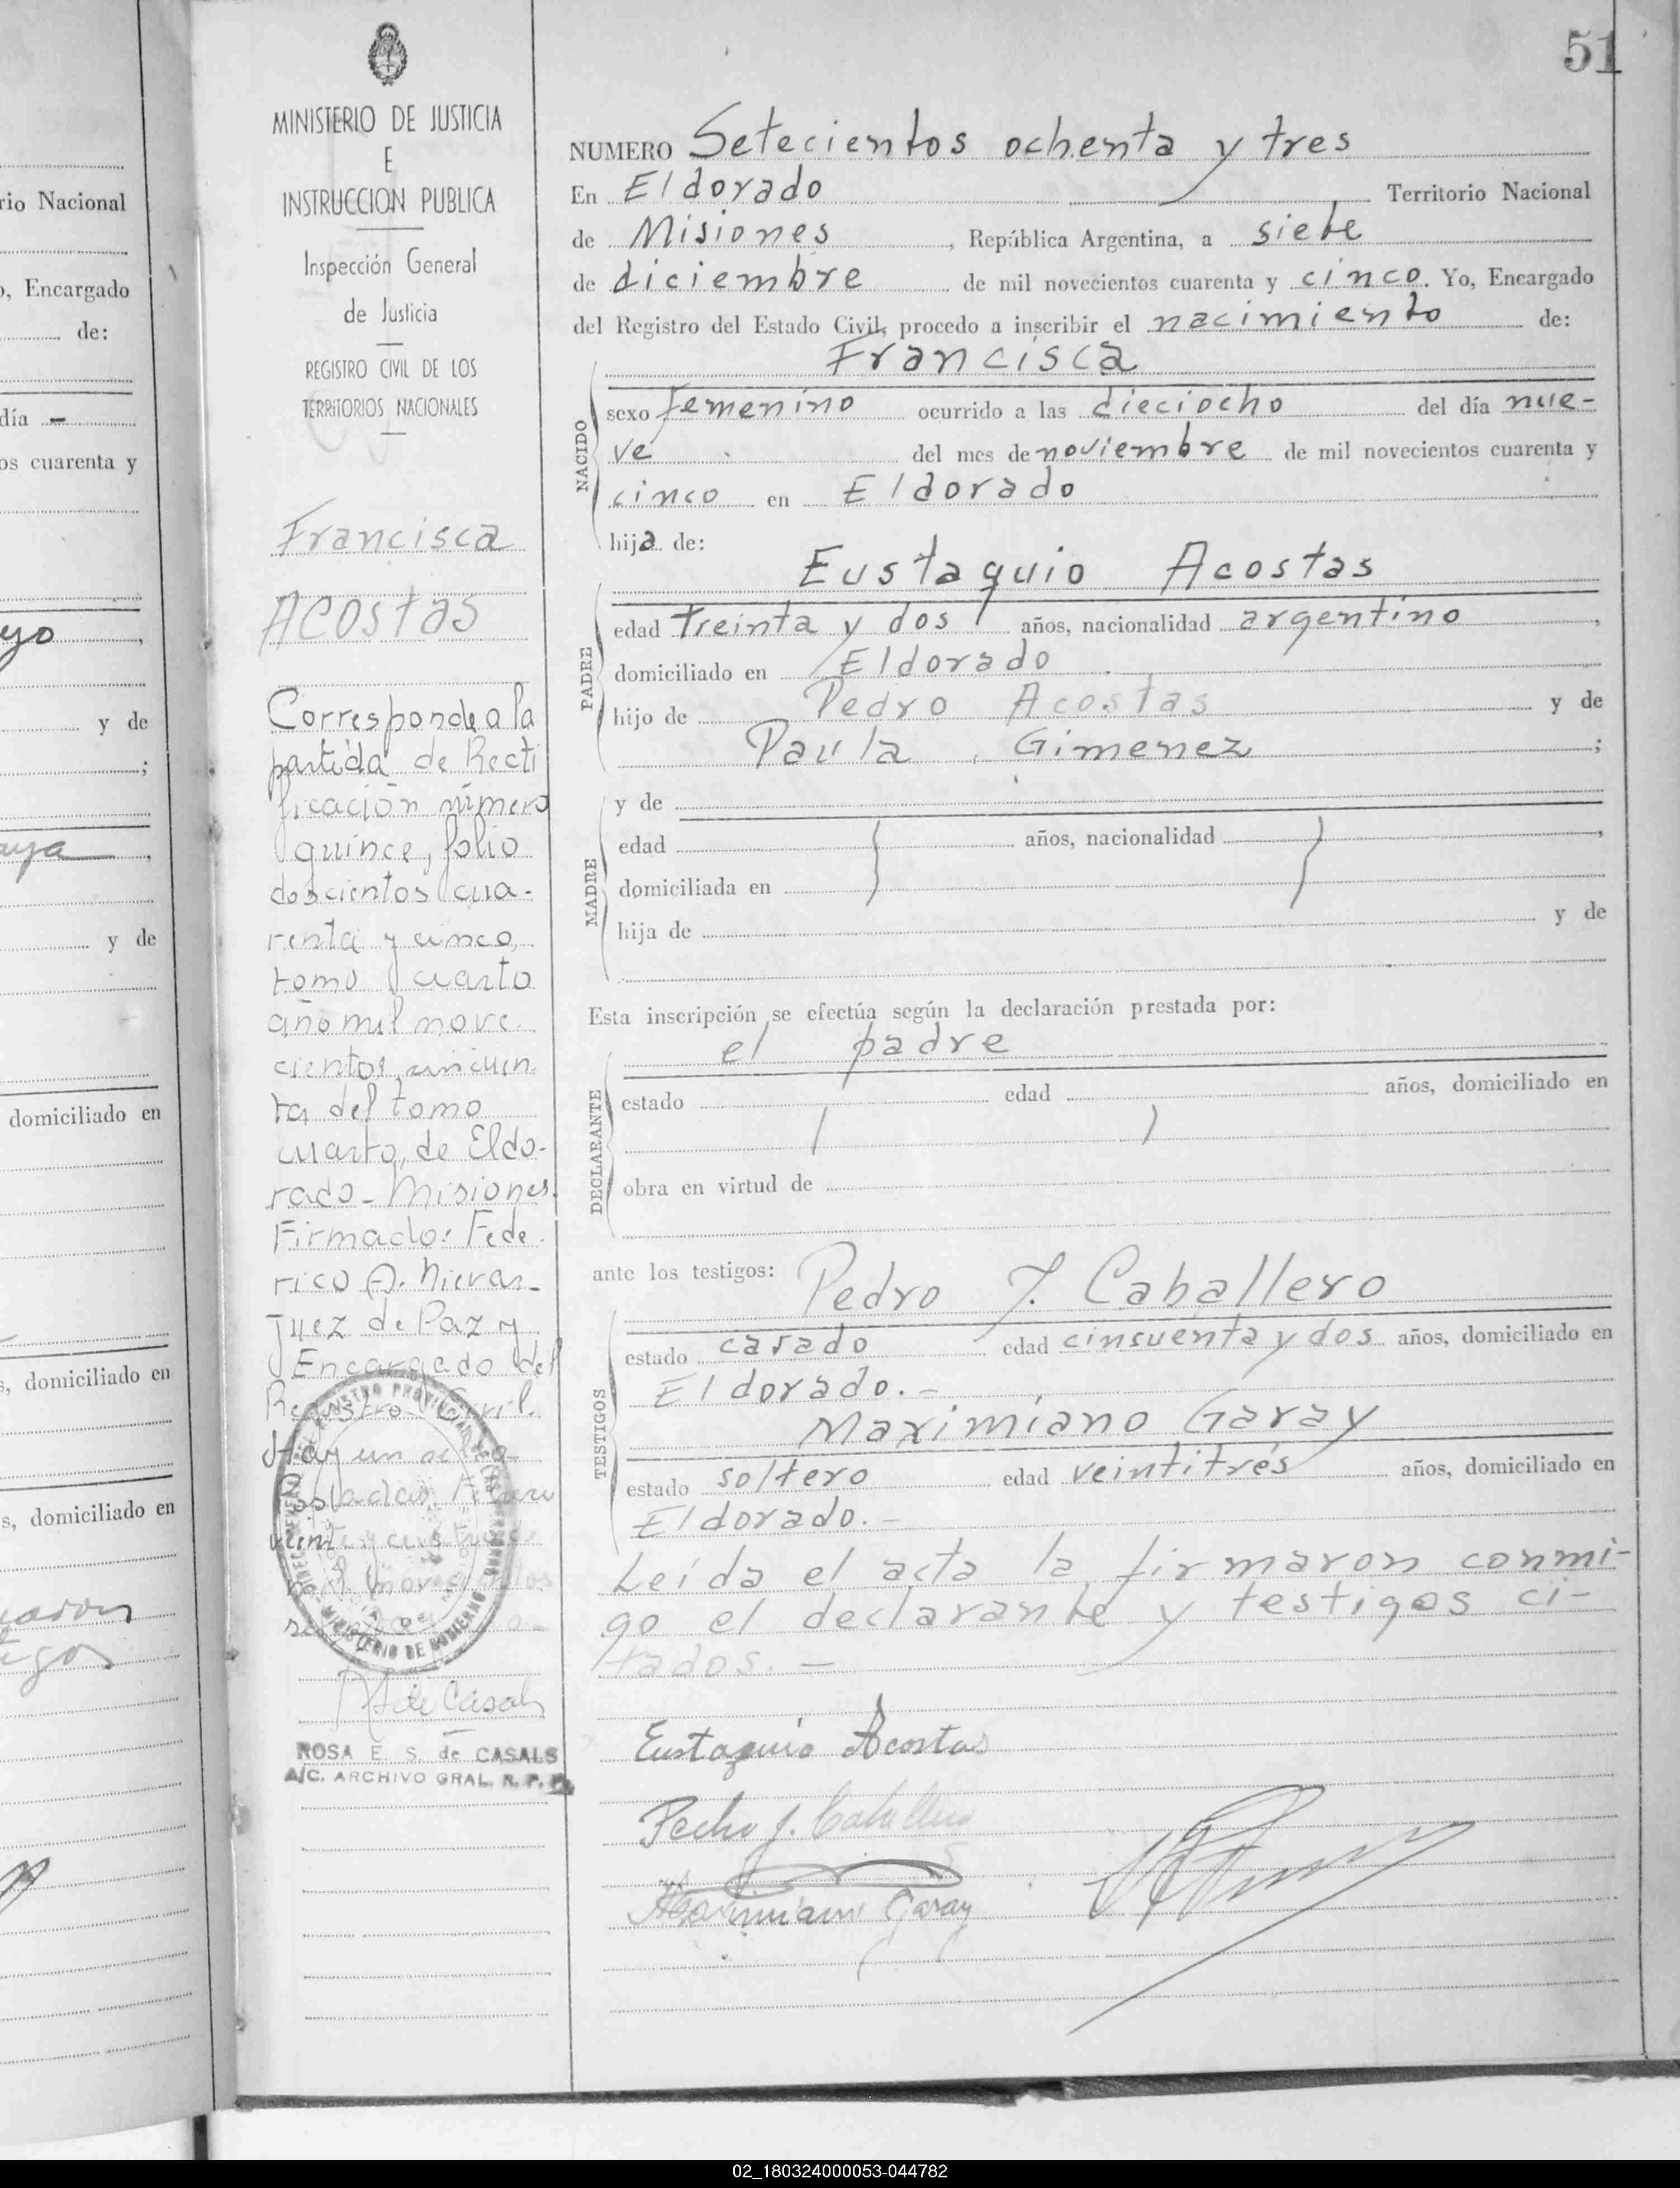 51
MINISTERIO DE JUSTICIA
E
INSTRUCCION PUBLICA
Inspección General
de Justicia
REGISTRO CIVIL DE LOS
TERRITORIOS NACIONALES
Francisca
Acostas
Corresponde a la
partida de Recti
ficación número
quince, folio
doscientos cua-
renta y cinco,
tomo cuarto
año mil nove-
cientos cincuen
ta del tomo
cuarto, de Eldo-
rado - Misiones.
Firmado: Fede-
rico A.
Juez de Paz y
Encargado del
Registro Civil.
Hay un sello
MINISTERIO DE GOBIERNO
ROSA E. S. de CASALS
A/C. ARCHIVO GRAL. R. P. P.
NUMERO Setecientos ochenta y tres
En Eldorado Territorio Nacional
de Misiones, República Argentina, a siete
de diciembre de mil novecientos cuarenta y cinco. Yo, Encargado
del Registro del Estado Civil, procedo a inscribir el nacimiento de:
Francisca
NACIDO
sexo femenino ocurrido a las dieciocho del día nue-
ve del mes de noviembre de mil novecientos cuarenta y
cinco en Eldorado
hija de:
Eustaquio Acostas
PADRE
edad treinta y dos años, nacionalidad argentino,
domiciliado en Eldorado
hijo de Pedro Acostas y de
Paula Gimenez;
MADRE
y de
edad años, nacionalidad ,
domiciliada en
hija de y de
Esta inscripción se efectúa según la declaración prestada por:
el padre
DECLARANTE
estado edad años, domiciliado en
obra en virtud de
ante los testigos: Pedro J. Caballero
TESTIGOS
estado casado edad cinsuenta y dos años, domiciliado en
Eldorado.-
Maximiano Garay
estado soltero edad veintitrés años, domiciliado en
Eldorado.-
Leída el acta la firmaron conmi-
go el declarante y testigos ci-
tados.-
Eustaquio Acostas
Pedro J. Caballero
Maximiano Garay
rio Nacional
o, Encargado
de:
día -
os cuarenta y
yo,
y de
;
aya,
y de
domiciliado en
s, domiciliado en
s, domiciliado en
02_180324000053-044782